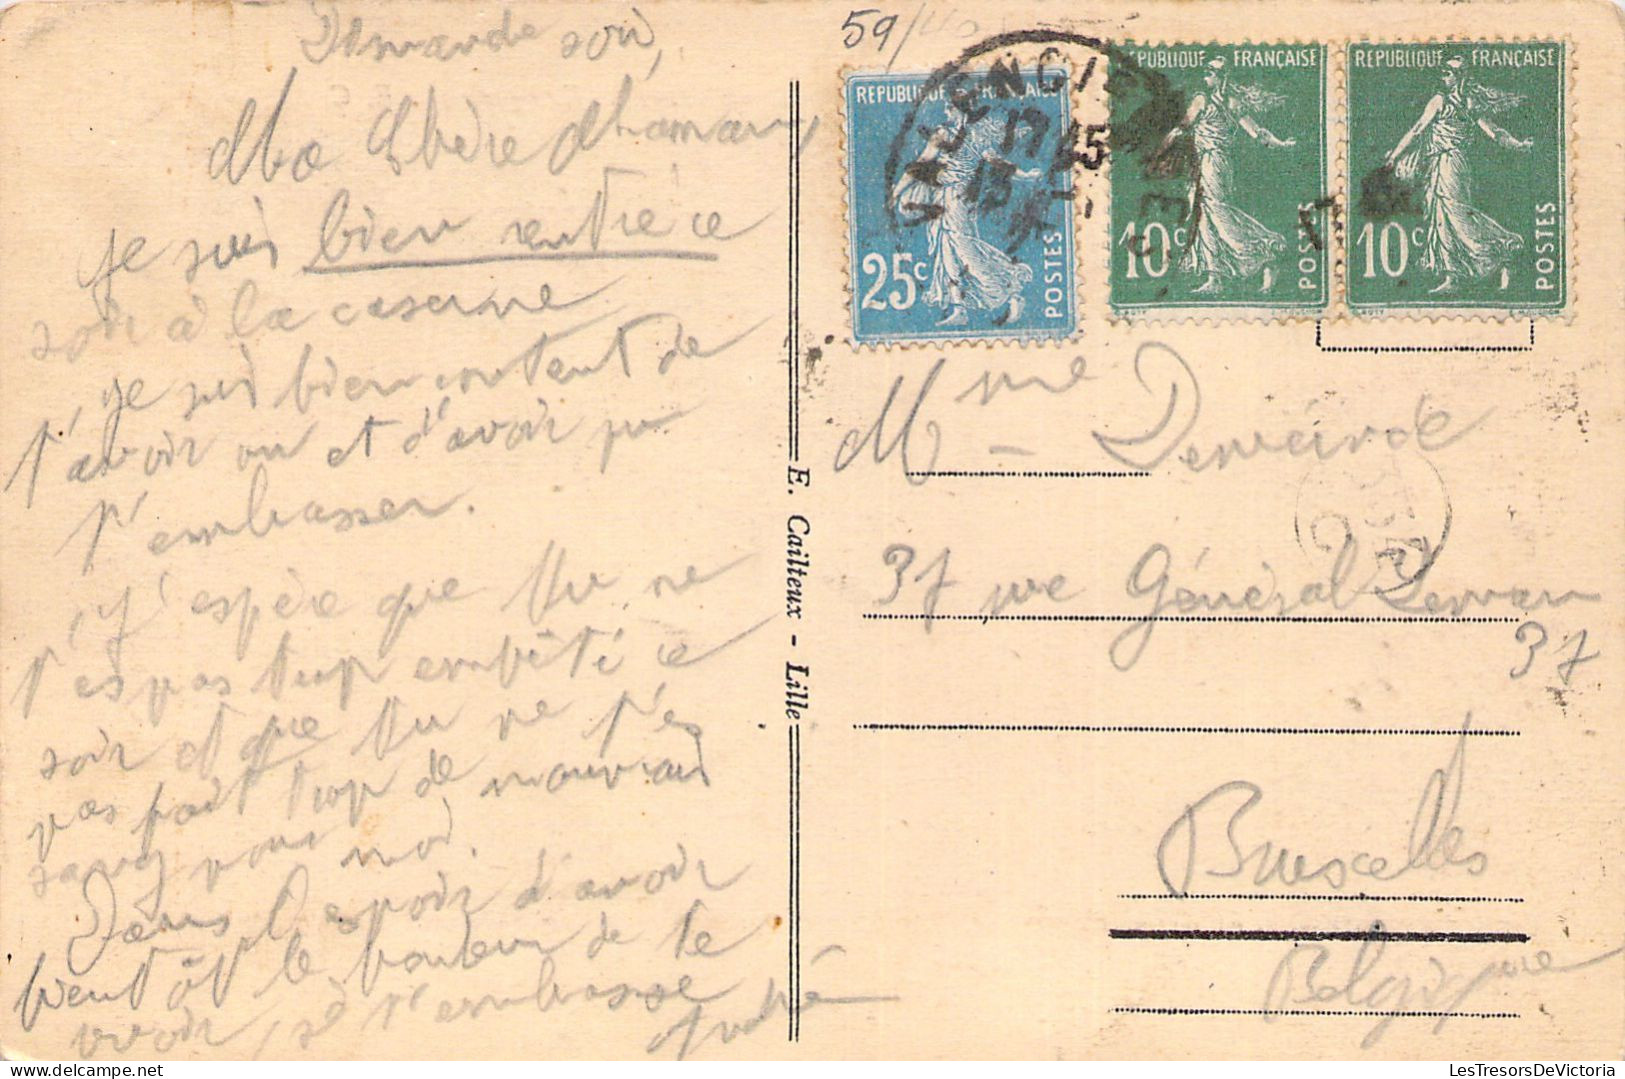 Dimanche soir,
Ma Chère Maman,
Je suis bien rentré ce
soir à la caserne
Je suis bien content de
t'avoir vu et d'avoir pu
t'embrasser.
J'espère que tu ne
t'es pas trop embêté ce
soir et que tu ne t'es
pas fait trop de mauvais
sang pour moi.
Dans l'espoir d'avoir
bientôt le bonheur de te
revoir, je t'embrasse
André
E. Cailteux - Lille
59/40
REPUBLIQUE FRANÇAISE
25c
POSTES
REPUBLIQUE FRANÇAISE
10c
POSTES
REPUBLIQUE FRANÇAISE
10c
POSTES
VALENCIENNES
17 45
13
Mme
37 rue Général
37
Bruxelles
Belgique
LesTresorsDeVictoria